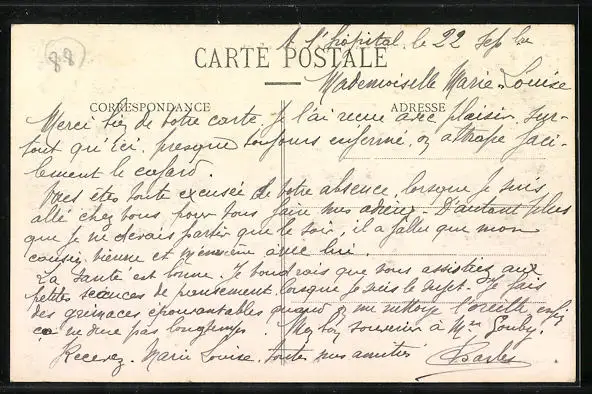 88
A l'hôpital, le 22 Sepbre
CARTE POSTALE
Mademoiselle Marie-Louise
CORRESPONDANCE
ADRESSE
Merci bien de votre carte. Je l'ai reçue avec plaisir, sur-
tout qu'ici, presque toujours enfermé, on attrape faci-
lement le cafard.
Vous êtes toute excusée de votre absence, lorsque je suis
allé chez vous pour vous faire mes adieux. D'autant plus
que je ne devais partir que le soir, il a fallu que mon
cousin vienne et m'emmène avec lui.
La santé est bonne. Je voudrais que vous assistiez aux
petites séances de pansement lorsque je suis le sujet. Je fais
des grimaces épouvantables quand on me nettoye l'oreille, enfin
ça ne dure pas longtemps. Mon bon souvenir à Mme
Recevez, Marie Louise, toutes mes amitiés
Charles